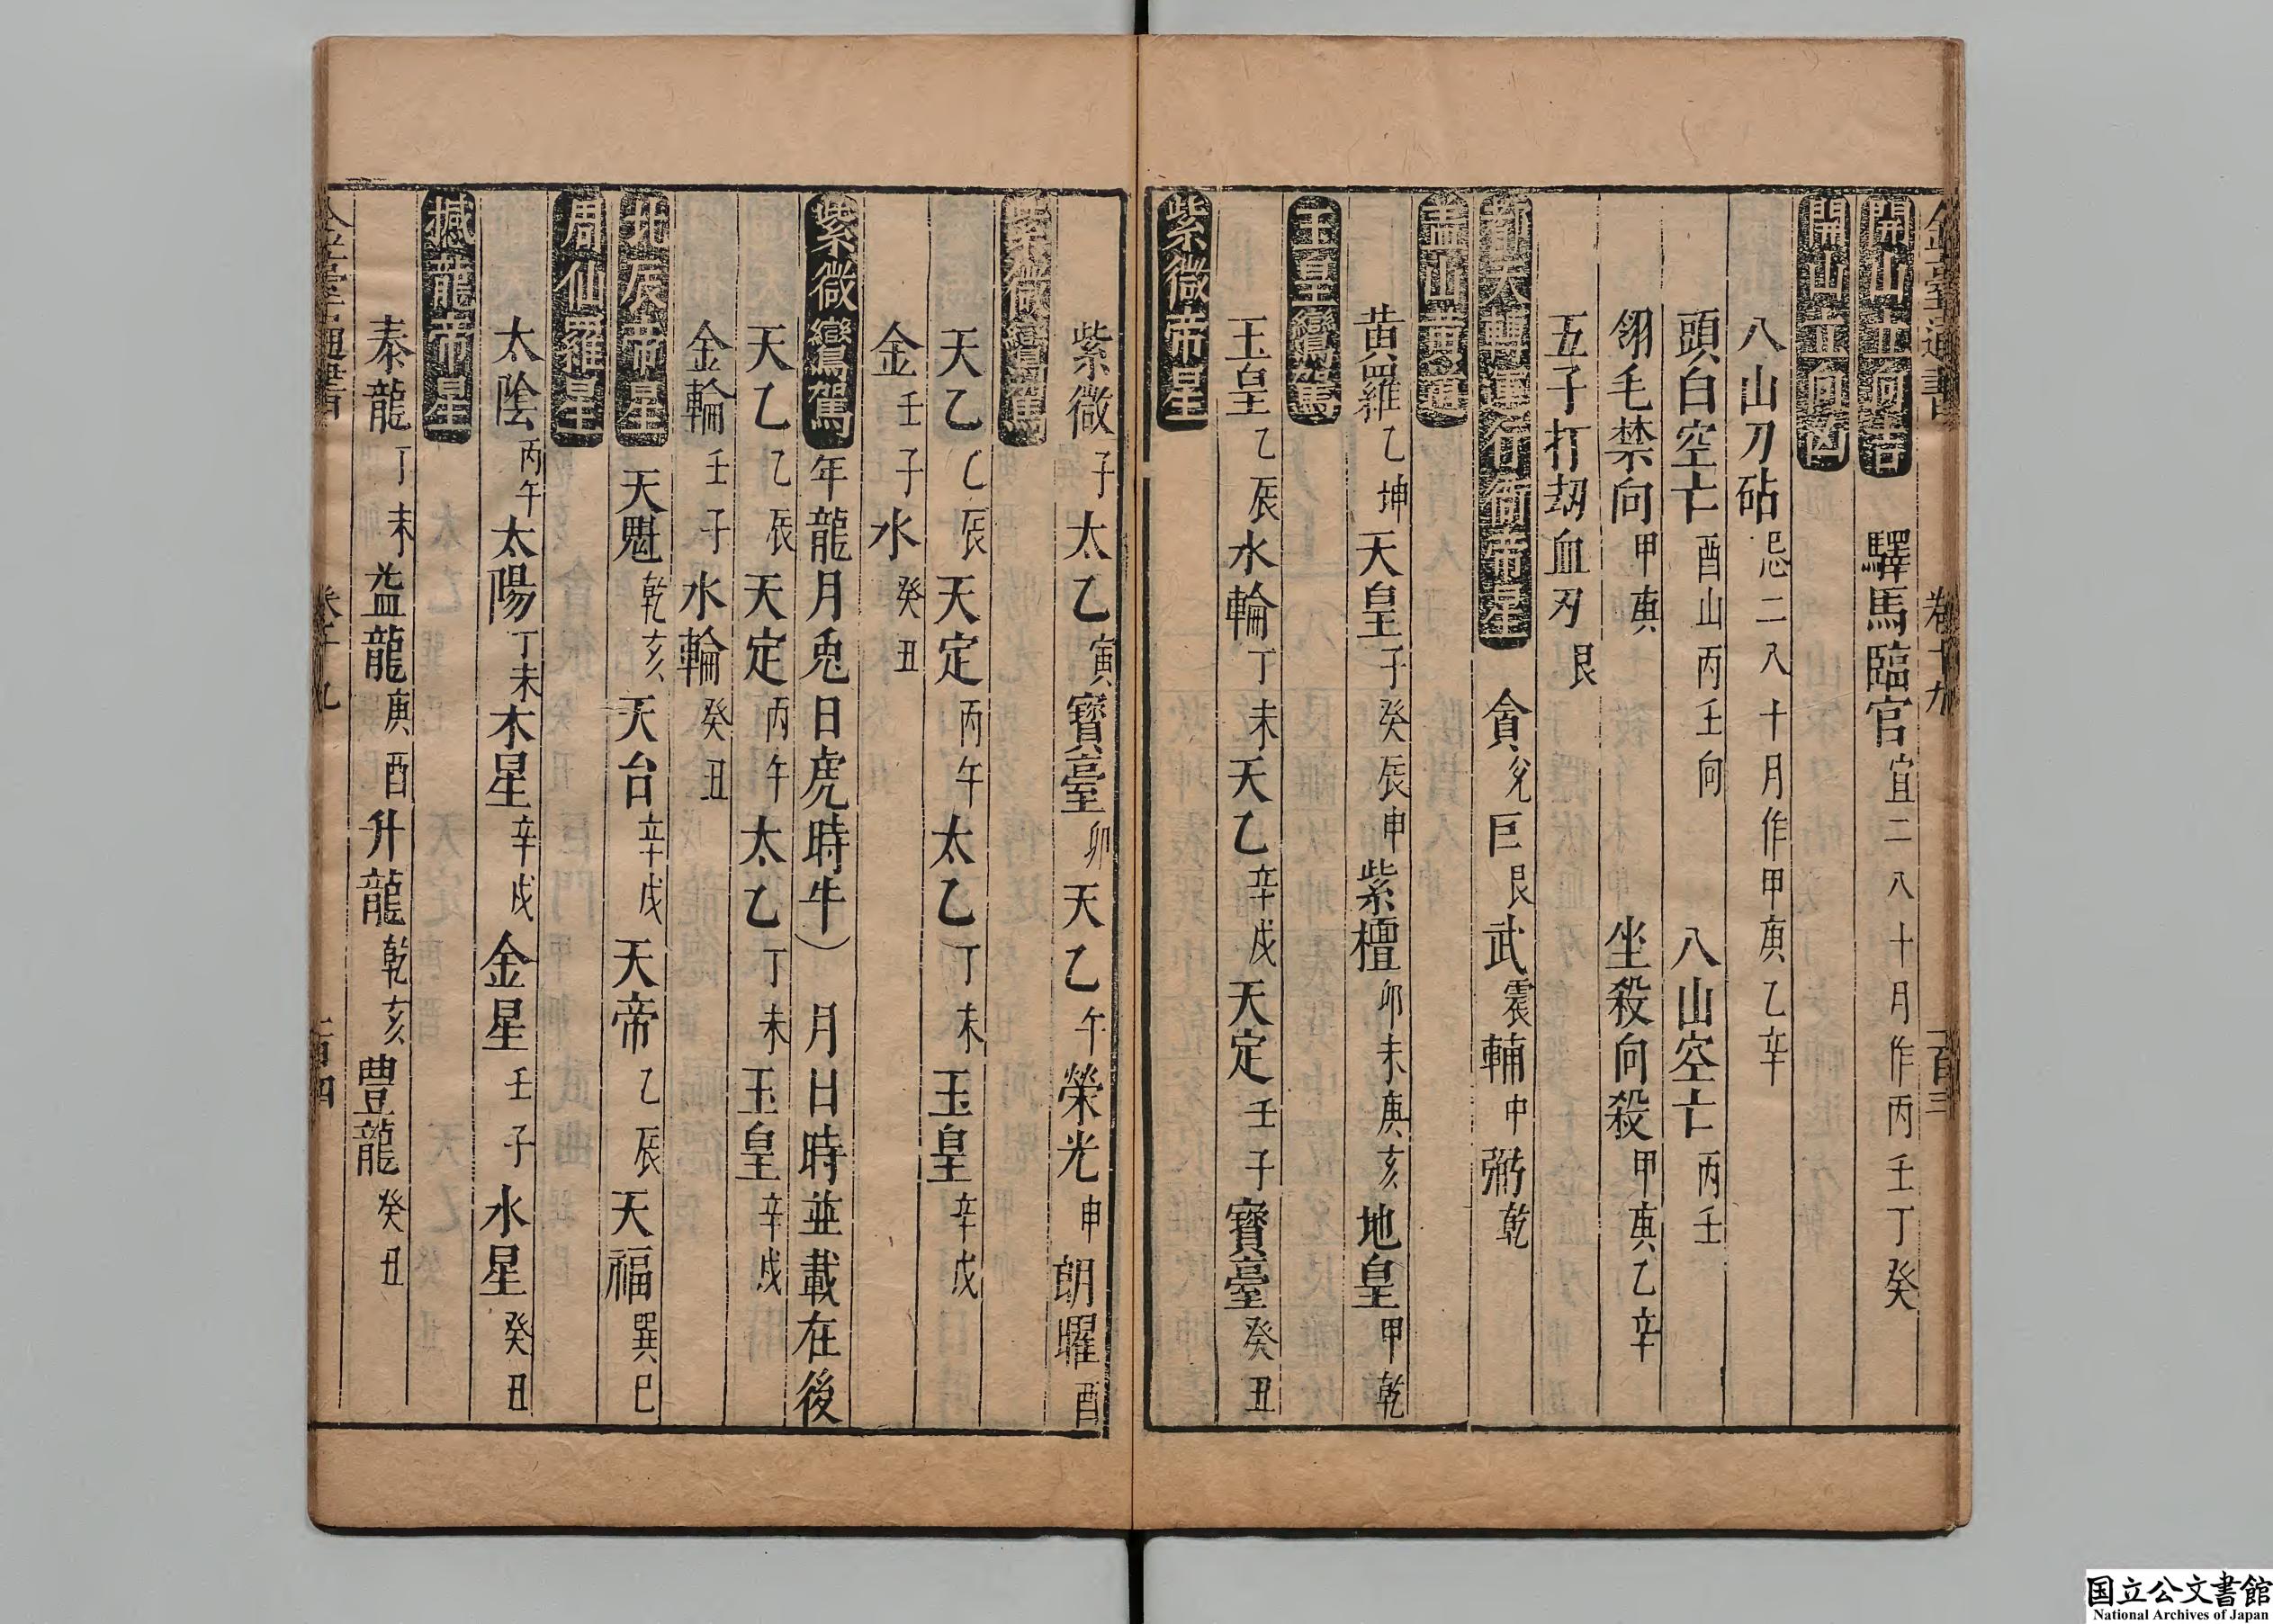 卷十九
開山立向吉 驛馬臨官宜二八十月作丙壬丁癸
開山立向凶
八山刀砧忌二八十月作甲庚乙辛
頭白空亡酉山丙壬向 八山空亡丙壬
翎毛禁向甲庚 坐殺向殺甲庚乙辛
五子打刼血刃艮
都天轉運行衙帝星 貪兌巨艮武震輔中弼乾
盖山黄道
黄羅乙坤天皇子癸辰申紫檀卯未庚亥地皇甲乾
玉皇鑾駕
玉皇乙辰水輪丁未天乙辛戌天定壬子寳臺癸丑
紫微帝星
紫微子太乙寅寳臺卯天乙午榮光申朗曜酉
紫微鑾駕
天乙乙辰天定丙午太乙丁未玉皇辛戌
金壬子水癸丑
紫微鑾駕年龍月兎日虎時牛）月日時並載在後
天乙乙辰天定丙午太乙丁未玉皇辛戌
金輪壬子水輪癸丑
北辰帝星 天魁乾亥天台辛戌天帝乙辰天福巽巳
周仙羅星
太陰丙午太陽丁未木星辛戌金星壬子水星癸丑
撼龍帝星
泰龍丁未益龍庚酉升龍乾亥豊龍癸丑
国立公文書館
National Archives of Japan